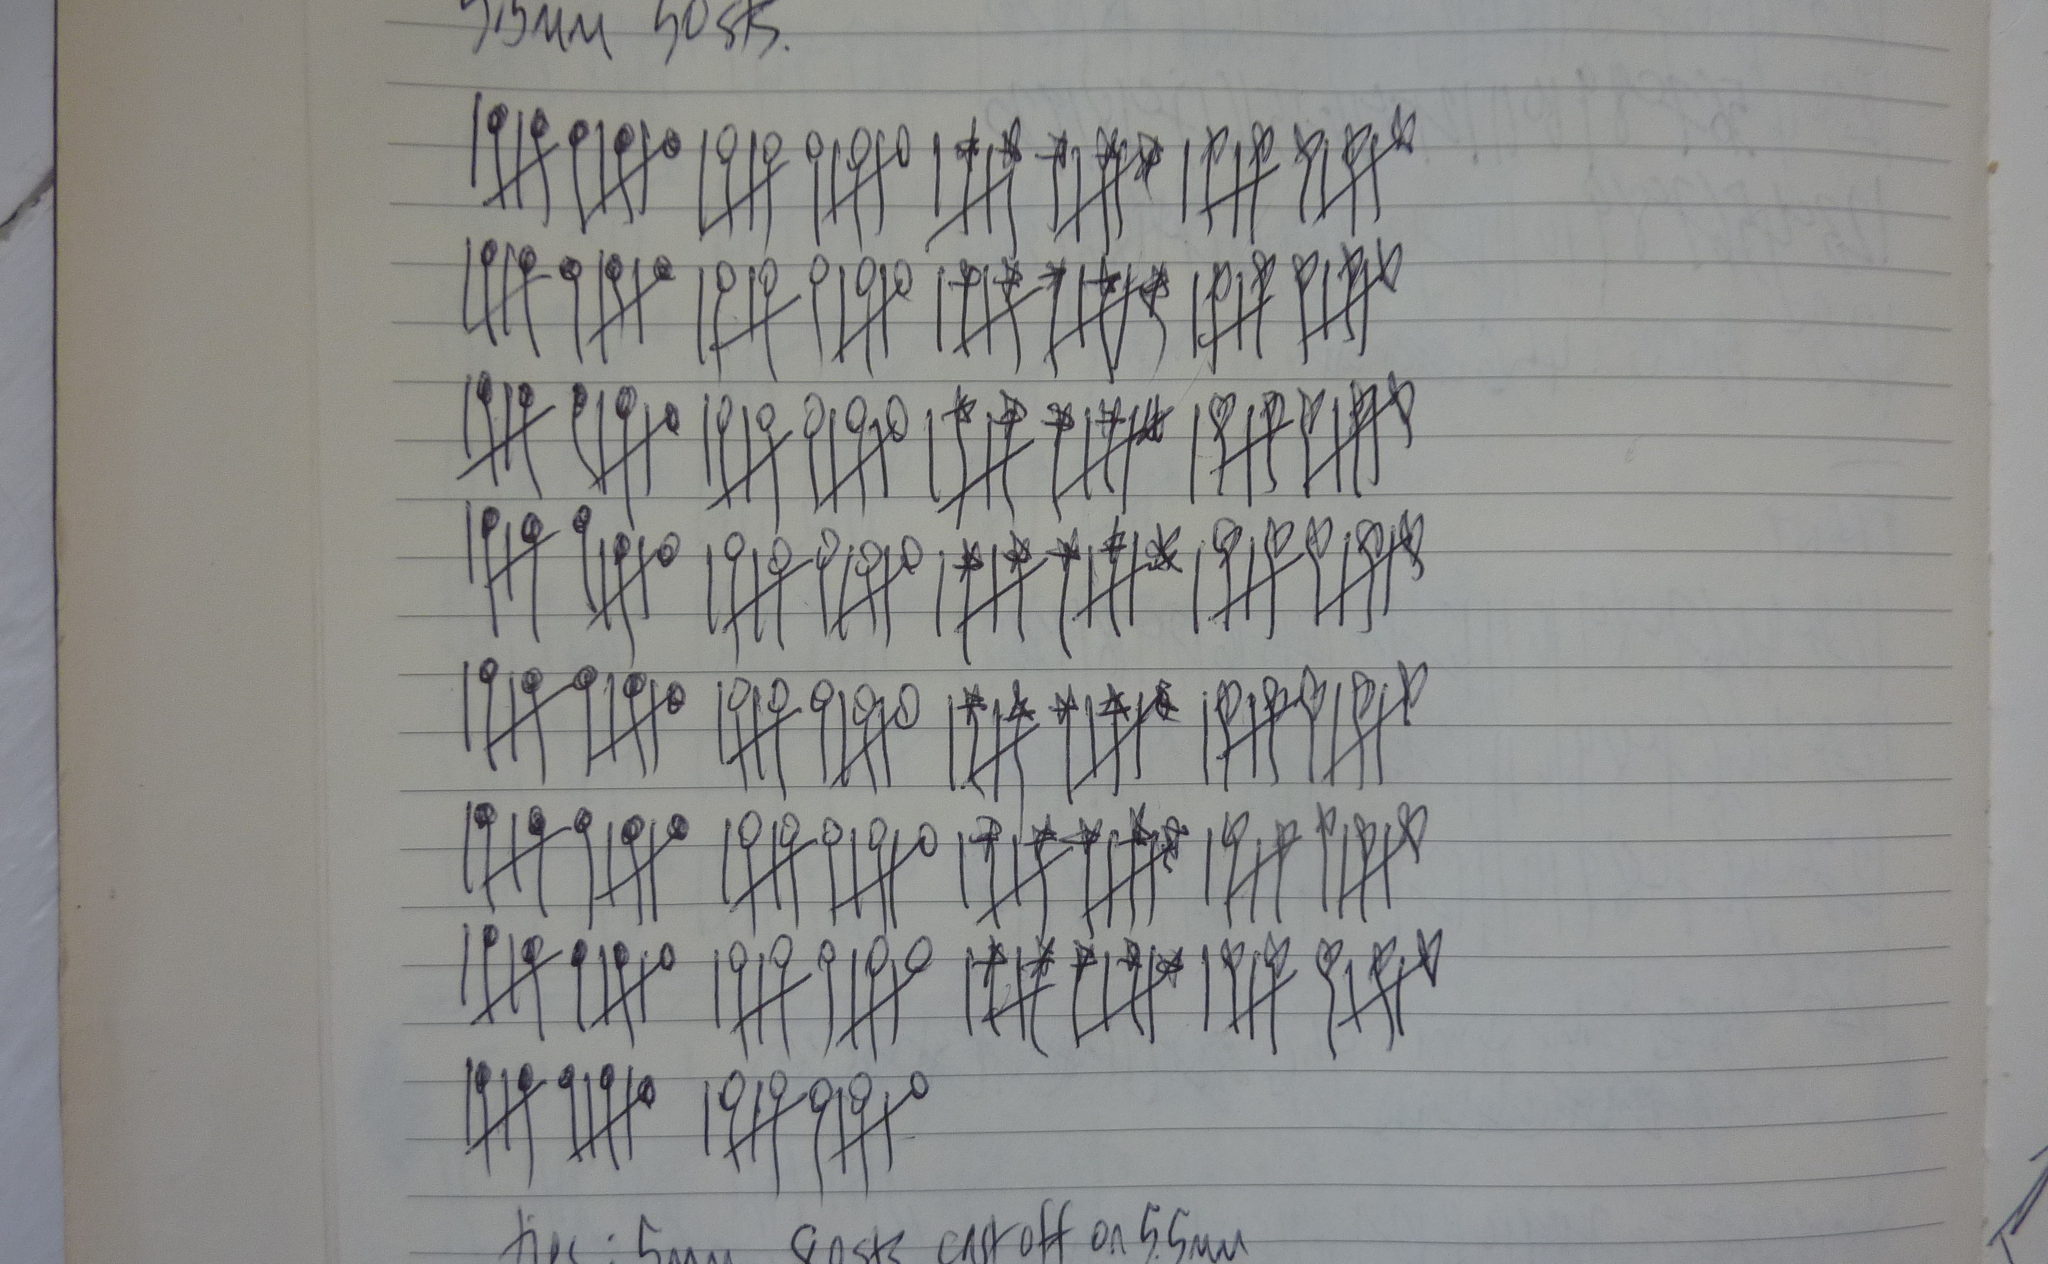 5.5mm 50sts.
ties: 5mm 80sts cast off on 5.5mm